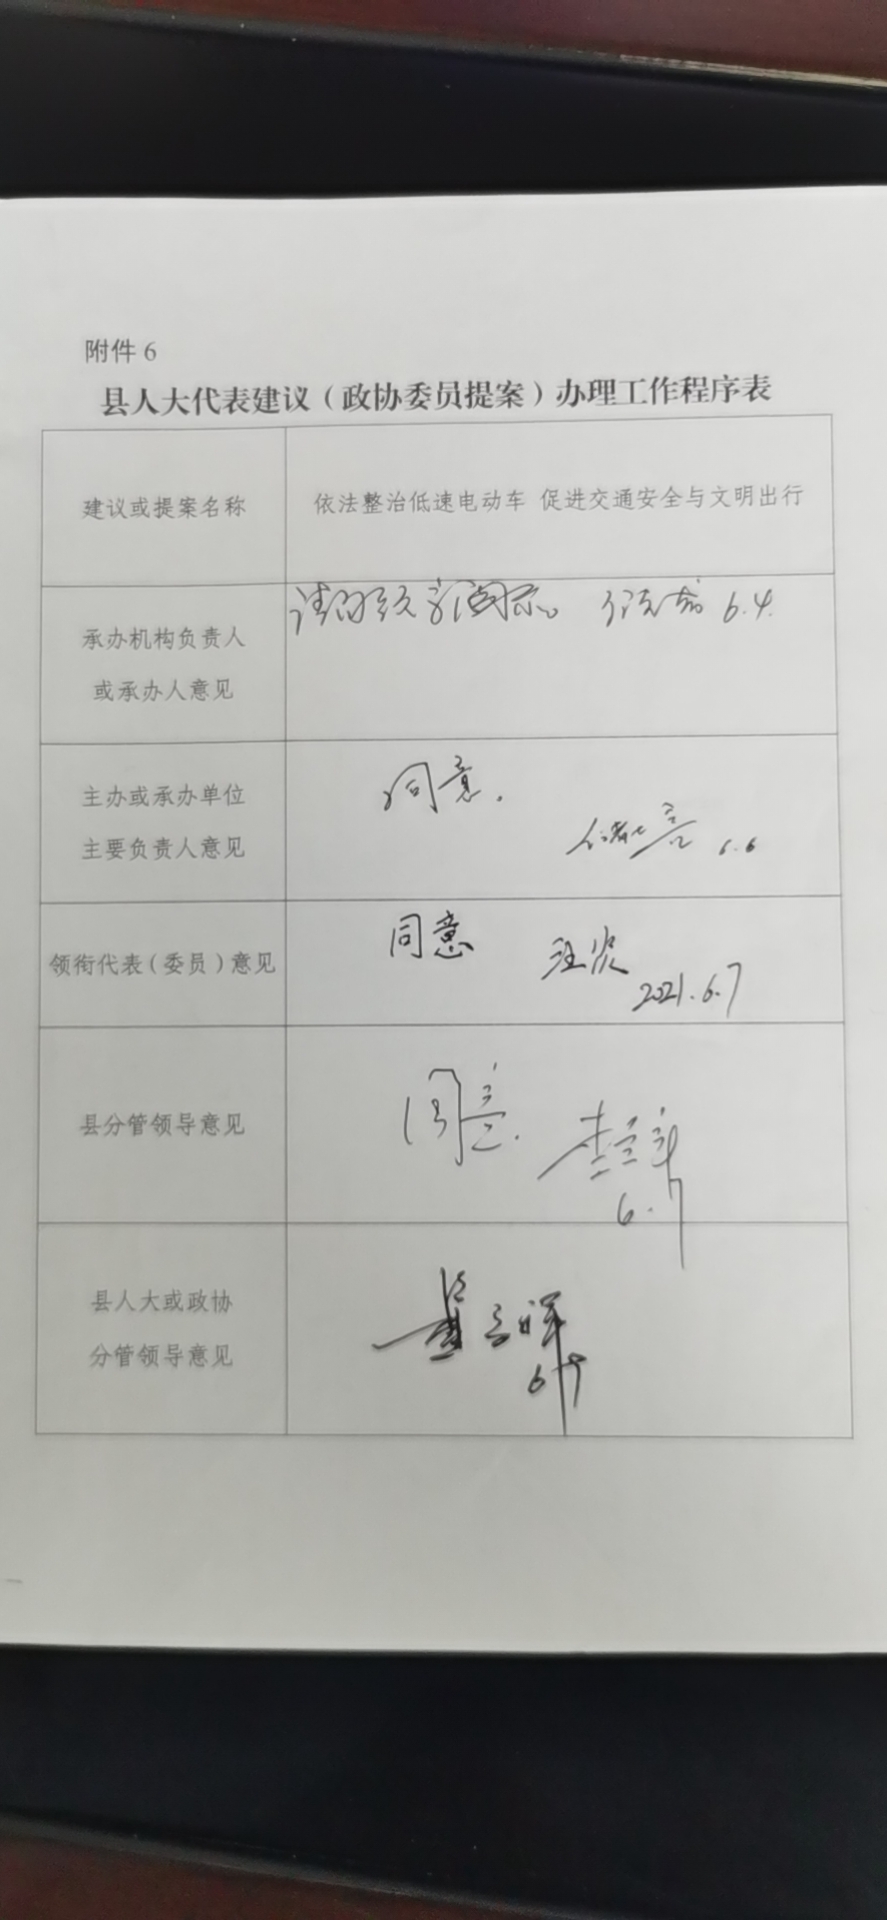 附件6
县人大代表建议（政协委员提案）办理工作程序表
建议或提案名称
依法整治低速电动车 促进交通安全与文明出行
承办机构负责人
或承办人意见
6.4.
主办或承办单位
主要负责人意见
同意.
6.6
领衔代表（委员）意见
同意
2021.6.7
县分管领导意见
同意.
6.7
县人大或政协
分管领导意见